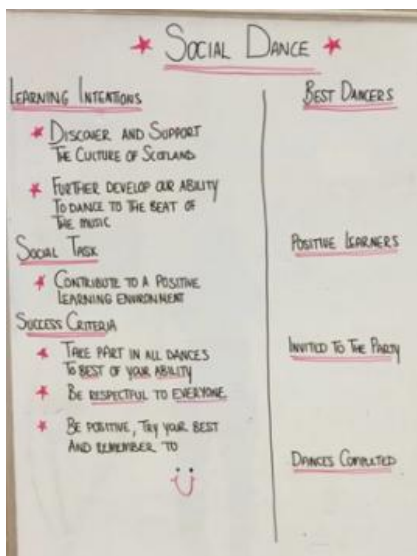 SOCIAL DANCE
LEARNING INTENTIONS
DISCOVER AND SUPPORT
THE CULTURE OF SCOTLAND
FURTHER DEVELOP OUR ABILITY
TO DANCE TO THE BEAT OF
THE MUSIC
SOCIAL TASK
CONTRIBUTE TO A POSITIVE
LEARNING ENVIRONMENT
SUCCESS CRITERIA
TAKE PART IN ALL DANCES
TO BEST OF YOUR ABILITY
BE RESPECTFUL TO EVERYONE
BE POSITIVE, TRY YOUR BEST
AND REMEMBER TO
BEST DANCERS
POSITIVE LEARNERS
INVITED TO THE PARTY
DANCES COMPLETED